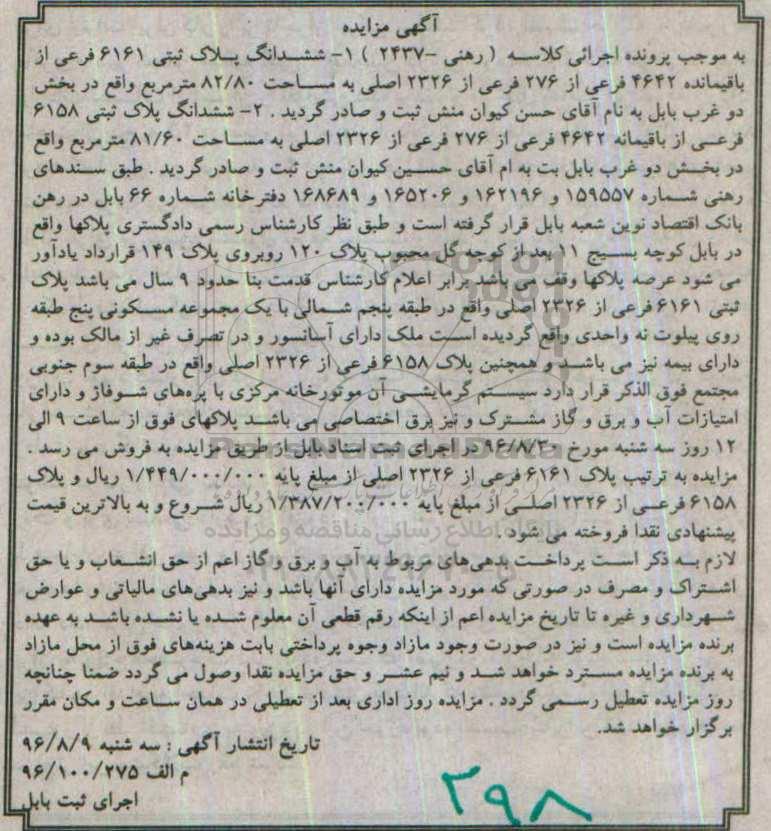 آگهی مزایده
به موجب پرونده اجرائی کلاسه ( رهنی -۲۴۳۷ ) ۱- ششدانگ پلاک ثبتی ۶۱۶۱ فرعی از
باقیمانده ۴۶۴۲ فرعی از ۲۷۶ فرعی از ۲۳۲۶ اصلی به مساحت ۸۲/۸۰ مترمربع واقع در بخش
دو غرب بابل به نام آقای حسن کیوان منش ثبت و صادر گردید . ۲- ششدانگ پلاک ثبتی ۶۱۵۸
فرعی از باقیمانه ۴۶۴۲ فرعی از ۲۷۶ فرعی از ۲۳۲۶ اصلی به مساحت ۸۱/۶۰ مترمربع واقع
در بخش دو غرب بابل بت به ام آقای حسین کیوان منش ثبت و صادر گردید . طبق سندهای
رهنی شماره ۱۵۹۵۵۷ و ۱۶۲۱۹۶ و ۱۶۵۲۰۶ و ۱۶۸۶۸۹ دفترخانه شماره ۶۶ بابل در رهن
بانک اقتصاد نوین شعبه بابل قرار گرفته است و طبق نظر کارشناس رسمی دادگستری پلاکها واقع
در بابل کوچه بسیج ۱۱ بعد از کوچه گل محبوب پلاک ۱۲۰ روبروی پلاک ۱۴۹ قرارداد یادآور
می شود عرصه پلاکها وقف می باشد برابر اعلام کارشناس قدمت بنا حدود ۹ سال می باشد پلاک
ثبتی ۶۱۶۱ فرعی از ۲۳۲۶ اصلی واقع در طبقه پنجم شمالی با یک مجموعه مسکونی پنج طبقه
روی پیلوت نه واحدی واقع گردیده است ملک دارای آسانسور و در تصرف غیر از مالک بوده و
دارای بیمه نیز می باشد و همچنین پلاک ۶۱۵۸ فرعی از ۲۳۲۶ اصلی واقع در طبقه سوم جنوبی
مجتمع فوق الذکر قرار دارد سیستم گرمایشی آن موتورخانه مرکزی با پره‌های شوفاژ و دارای
امتیازات آب و برق و گاز مشترک و نیز برق اختصاصی می باشد پلاکهای فوق از ساعت ۹ الی
۱۲ روز سه شنبه مورخ ۹۶/۸/۳۰ در اجرای ثبت اسناد بابل از طریق مزایده به فروش می رسد .
مزایده به ترتیب پلاک ۶۱۶۱ فرعی از ۲۳۲۶ اصلی از مبلغ پایه ۱/۴۴۹/۰۰۰/۰۰۰ ریال و پلاک
۶۱۵۸ فرعی از ۲۳۲۶ اصلی از مبلغ پایه ۱/۳۸۷/۲۰۰/۰۰۰ ریال شروع و به بالاترین قیمت
پیشنهادی نقدا فروخته می شود .
لازم به ذکر است پرداخت بدهی‌های مربوط به آب و برق و گاز اعم از حق انشعاب و یا حق
اشتراک و مصرف در صورتی که مورد مزایده دارای آنها باشد و نیز بدهی‌های مالیاتی و عوارض
شهرداری و غیره تا تاریخ مزایده اعم از اینکه رقم قطعی آن معلوم شده یا نشده باشد به عهده
برنده مزایده است و نیز در صورت وجود مازاد وجوه پرداختی بابت هزینه‌های فوق از محل مازاد
به برنده مزایده مسترد خواهد شد و نیم عشر و حق مزایده نقدا وصول می گردد ضمنا چنانچه
روز مزایده تعطیل رسمی گردد . مزایده روز اداری بعد از تعطیلی در همان ساعت و مکان مقرر
برگزار خواهد شد.
تاریخ انتشار آگهی : سه شنبه ۹۶/۸/۹
م الف ۹۶/۱۰۰/۲۷۵
اجرای ثبت بابل
۳۹۸